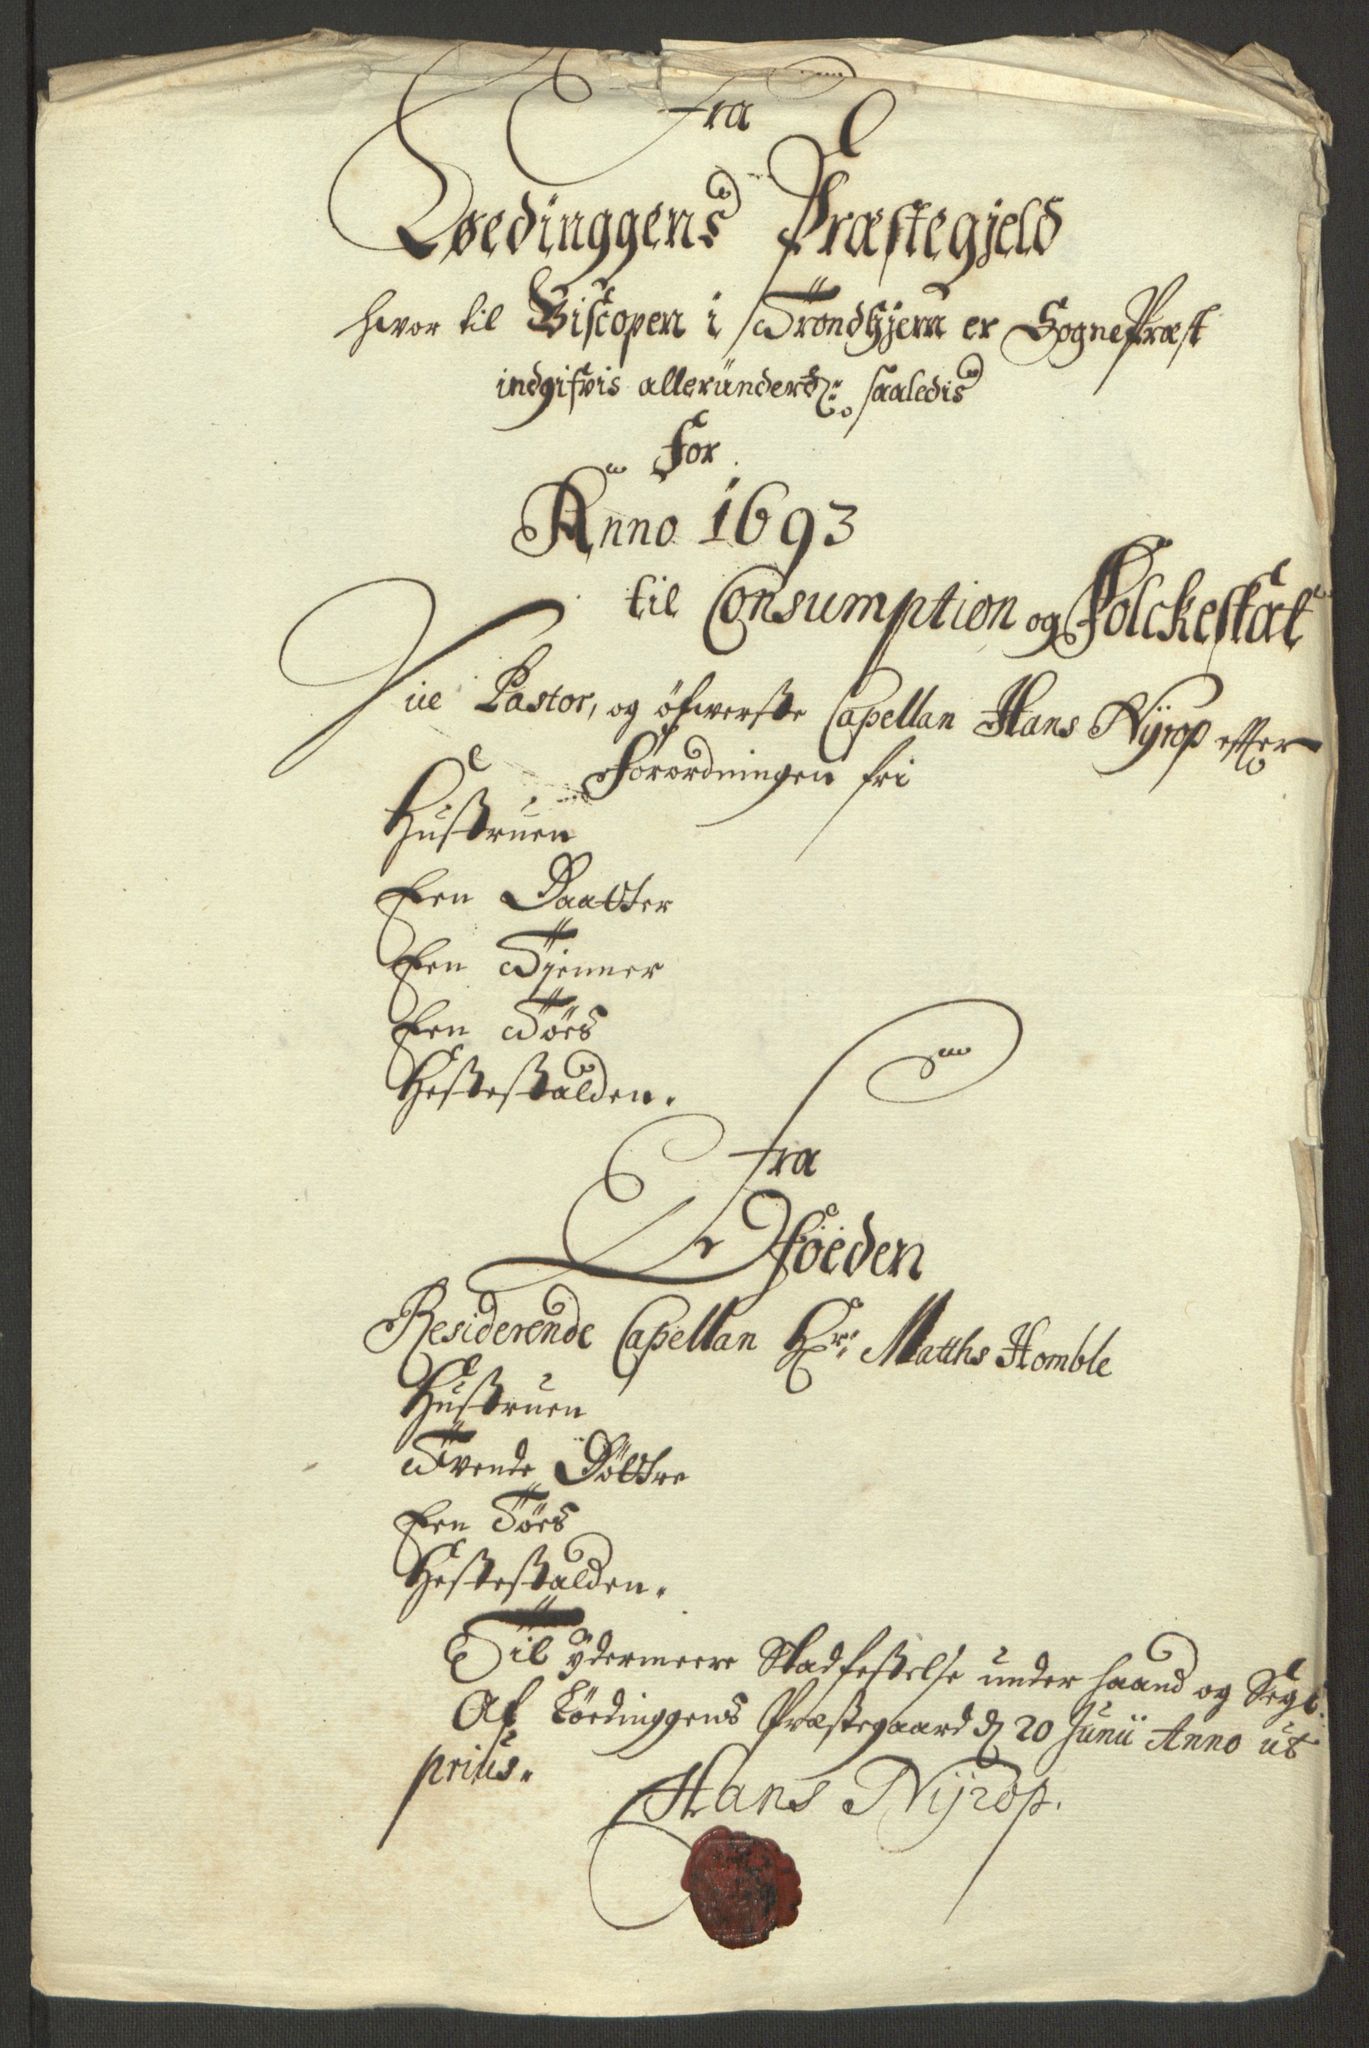 Fra
Løedinggens Præstegjeld
hvor til Biscopen i Trondhjem er SognePræst
indgifvis alleründerd: saaledis
For
Anno 1693
til Consumption og Folckeskat
Vice Pastor, og öfwerste Capellan Hans Nÿrop efter
Forordningen fri
Hustruen
Een Daatter
Een Tjenner
Een Töes
Hestestalden.
Fra
Ofoeden
Residerende Capellan Hr: Matths Homble
Hustruen
Tvende Döttre
Een Töes
Hestestalden.
Til ÿdermeere Stadfestelse under haand og Segl.
Af Löedinggens Præstegaard d 20 Junii Anno ut
prius.
Hans Nÿrop.